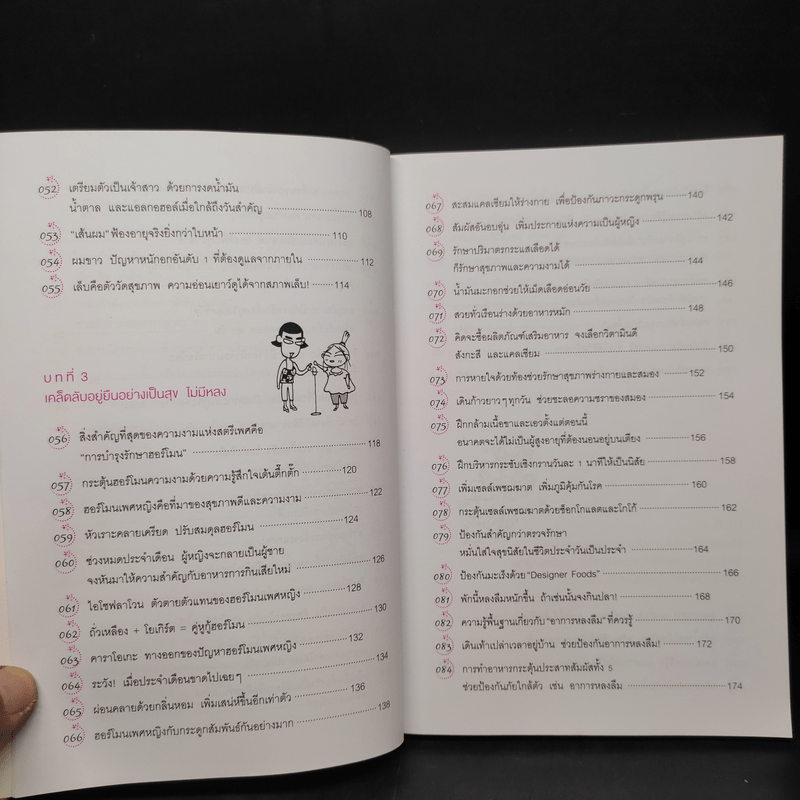 052 เตรียมตัวเป็นเจ้าสาว ด้วยการงดน้ำมัน
น้ำตาล และแอลกอฮอล์เมื่อใกล้ถึงวันสำคัญ 108
053 "เส้นผม" ฟ้องอายุจริงยิ่งกว่าใบหน้า 110
054 ผมขาว ปัญหาหนักอกอันดับ 1 ที่ต้องดูแลจากภายใน 112
055 เล็บคือตัววัดสุขภาพ ความอ่อนเยาว์ดูได้จากสภาพเล็บ! 114
บทที่ 3
เคล็ดลับอยู่ยืนอย่างเป็นสุข ไม่มีหลง
056 สิ่งสำคัญที่สุดของความงามแห่งสตรีเพศคือ
"การบำรุงรักษาฮอร์โมน" 118
057 กระตุ้นฮอร์โมนความงามด้วยความรู้สึกใจเต้นตึ๊กตั๊ก 120
058 ฮอร์โมนเพศหญิงคือที่มาของสุขภาพดีและความงาม 122
059 หัวเราะคลายเครียด ปรับสมดุลฮอร์โมน 124
060 ช่วงหมดประจำเดือน ผู้หญิงจะกลายเป็นผู้ชาย
จงหันมาให้ความสำคัญกับอาหารการกินเสียใหม่ 126
061 ไอโซฟลาโวน ตัวตายตัวแทนของฮอร์โมนเพศหญิง 128
062 ถั่วเหลือง + โยเกิร์ต = คู่หูกู้ฮอร์โมน 130
063 คาราโอเกะ ทางออกของปัญหาฮอร์โมนเพศหญิง 132
064 ระวัง! เมื่อประจำเดือนขาดไปเฉยๆ 134
065 ผ่อนคลายด้วยกลิ่นหอม เพิ่มเสน่ห์ขึ้นอีกเท่าตัว 136
066 ฮอร์โมนเพศหญิงกับกระดูกสัมพันธ์กันอย่างมาก 138
067 สะสมแคลเซียมให้ร่างกาย เพื่อป้องกันภาวะกระดูกพรุน 140
068 สัมผัสอันอบอุ่น เพิ่มประกายแห่งความเป็นผู้หญิง 142
069 รักษาปริมาตรกระแสเลือดได้
ก็รักษาสุขภาพและความงามได้ 144
070 น้ำมันมะกอกช่วยให้เม็ดเลือดอ่อนวัย 146
071 สวยทั่วเรือนร่างด้วยอาหารหมัก 148
072 คิดจะซื้อผลิตภัณฑ์เสริมอาหาร จงเลือกวิตามินดี
สังกะสี และแคลเซียม 150
073 การหายใจด้วยท้องช่วยรักษาสุขภาพร่างกายและสมอง 152
074 เดินก้าวยาวๆ ทุกวัน ช่วยชะลอความชราของสมอง 154
075 ฝึกกล้ามเนื้อขาและเอวตั้งแต่ตอนนี้
อนาคตจะได้ไม่เป็นผู้สูงอายุที่ต้องนอนอยู่บนเตียง 156
076 ฝึกบริหารกระชับเชิงกรานวันละ 1 นาทีให้เป็นนิสัย 158
077 เพิ่มเซลล์เพชฌฆาต เพิ่มภูมิคุ้มกันโรค 160
078 กระตุ้นเซลล์เพชฌฆาตด้วยช็อกโกแลตและโกโก้ 162
079 ป้องกันสำคัญกว่าตรวจรักษา
หมั่นใส่ใจสุขนิสัยในชีวิตประจำวันเป็นประจำ 164
080 ป้องกันมะเร็งด้วย "Designer Foods" 166
081 พักนี้หลงลืมหนักขึ้น ถ้าเช่นนั้นจงกินปลา! 168
082 ความรู้พื้นฐานเกี่ยวกับ "อาการหลงลืม" ที่ควรรู้ 170
083 เดินเท้าเปล่าเวลาอยู่บ้าน ช่วยป้องกันอาการหลงลืม! 172
084 การทำอาหารกระตุ้นประสาทสัมผัสทั้ง 5
ช่วยป้องกันภัยใกล้ตัว เช่น อาการหลงลืม 174